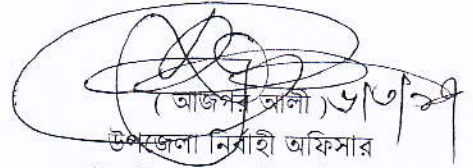 ( আজগর আলী )
উপজেলা নির্বাহী অফিসার